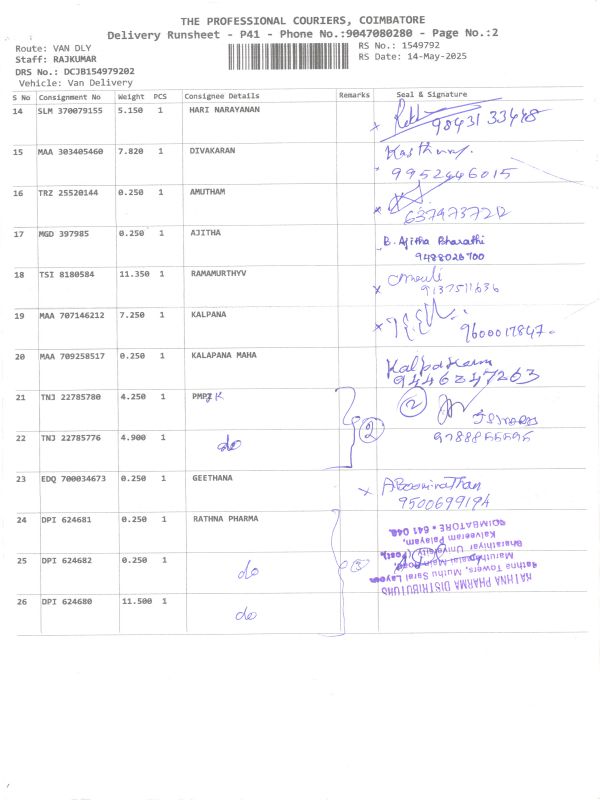 THE PROFESSIONAL COURIERS, COIMBATORE
Delivery Runsheet - P41 - Phone No.:9047080280 - Page No.:2
Route: VAN DLY RS No.: 1549792
Staff: RAJKUMAR RS Date: 14-May-2025
DRS No.: DCJB154979202
Vehicle: Van Delivery
S No Consignment No Weight PCS Consignee Details Remarks Seal & Signature
14 SLM 370079155 5.150 1 HARI NARAYANAN
x 98431 33448
15 MAA 303405460 7.820 1 DIVAKARAN
9952446015
16 TRZ 25520144 0.250 1 AMUTHAM
x
17 MGD 397985 0.250 1 AJITHA B. Ajitha Bharathi
9488026700
18 TSI 8180584 11.350 1 RAMAMURTHYV
x 9137511636
19 MAA 707146212 7.250 1 KALPANA
x 9600017847
20 MAA 709258517 0.250 1 KALAPANA MAHA
9446247263
21 TNJ 22785780 4.250 1 2
22 TNJ 22785776 4.900 1 do 2 9788855595
23 EDQ 700034673 0.250 1 GEETHANA x
950069919A
24 DPI 624681 0.250 1 RATHNA PHARMA
25 DPI 624682 0.250 1 do 3
26 DPI 624680 11.500 1 do
RATHNA PHARMA DISTRIBUTORS
Rathna Towers, Muthu Sarai Layout
Maruthamalai Main Road,
Bharathiyar University (Post),
Kalveeram Palayam,
COIMBATORE - 641 046.